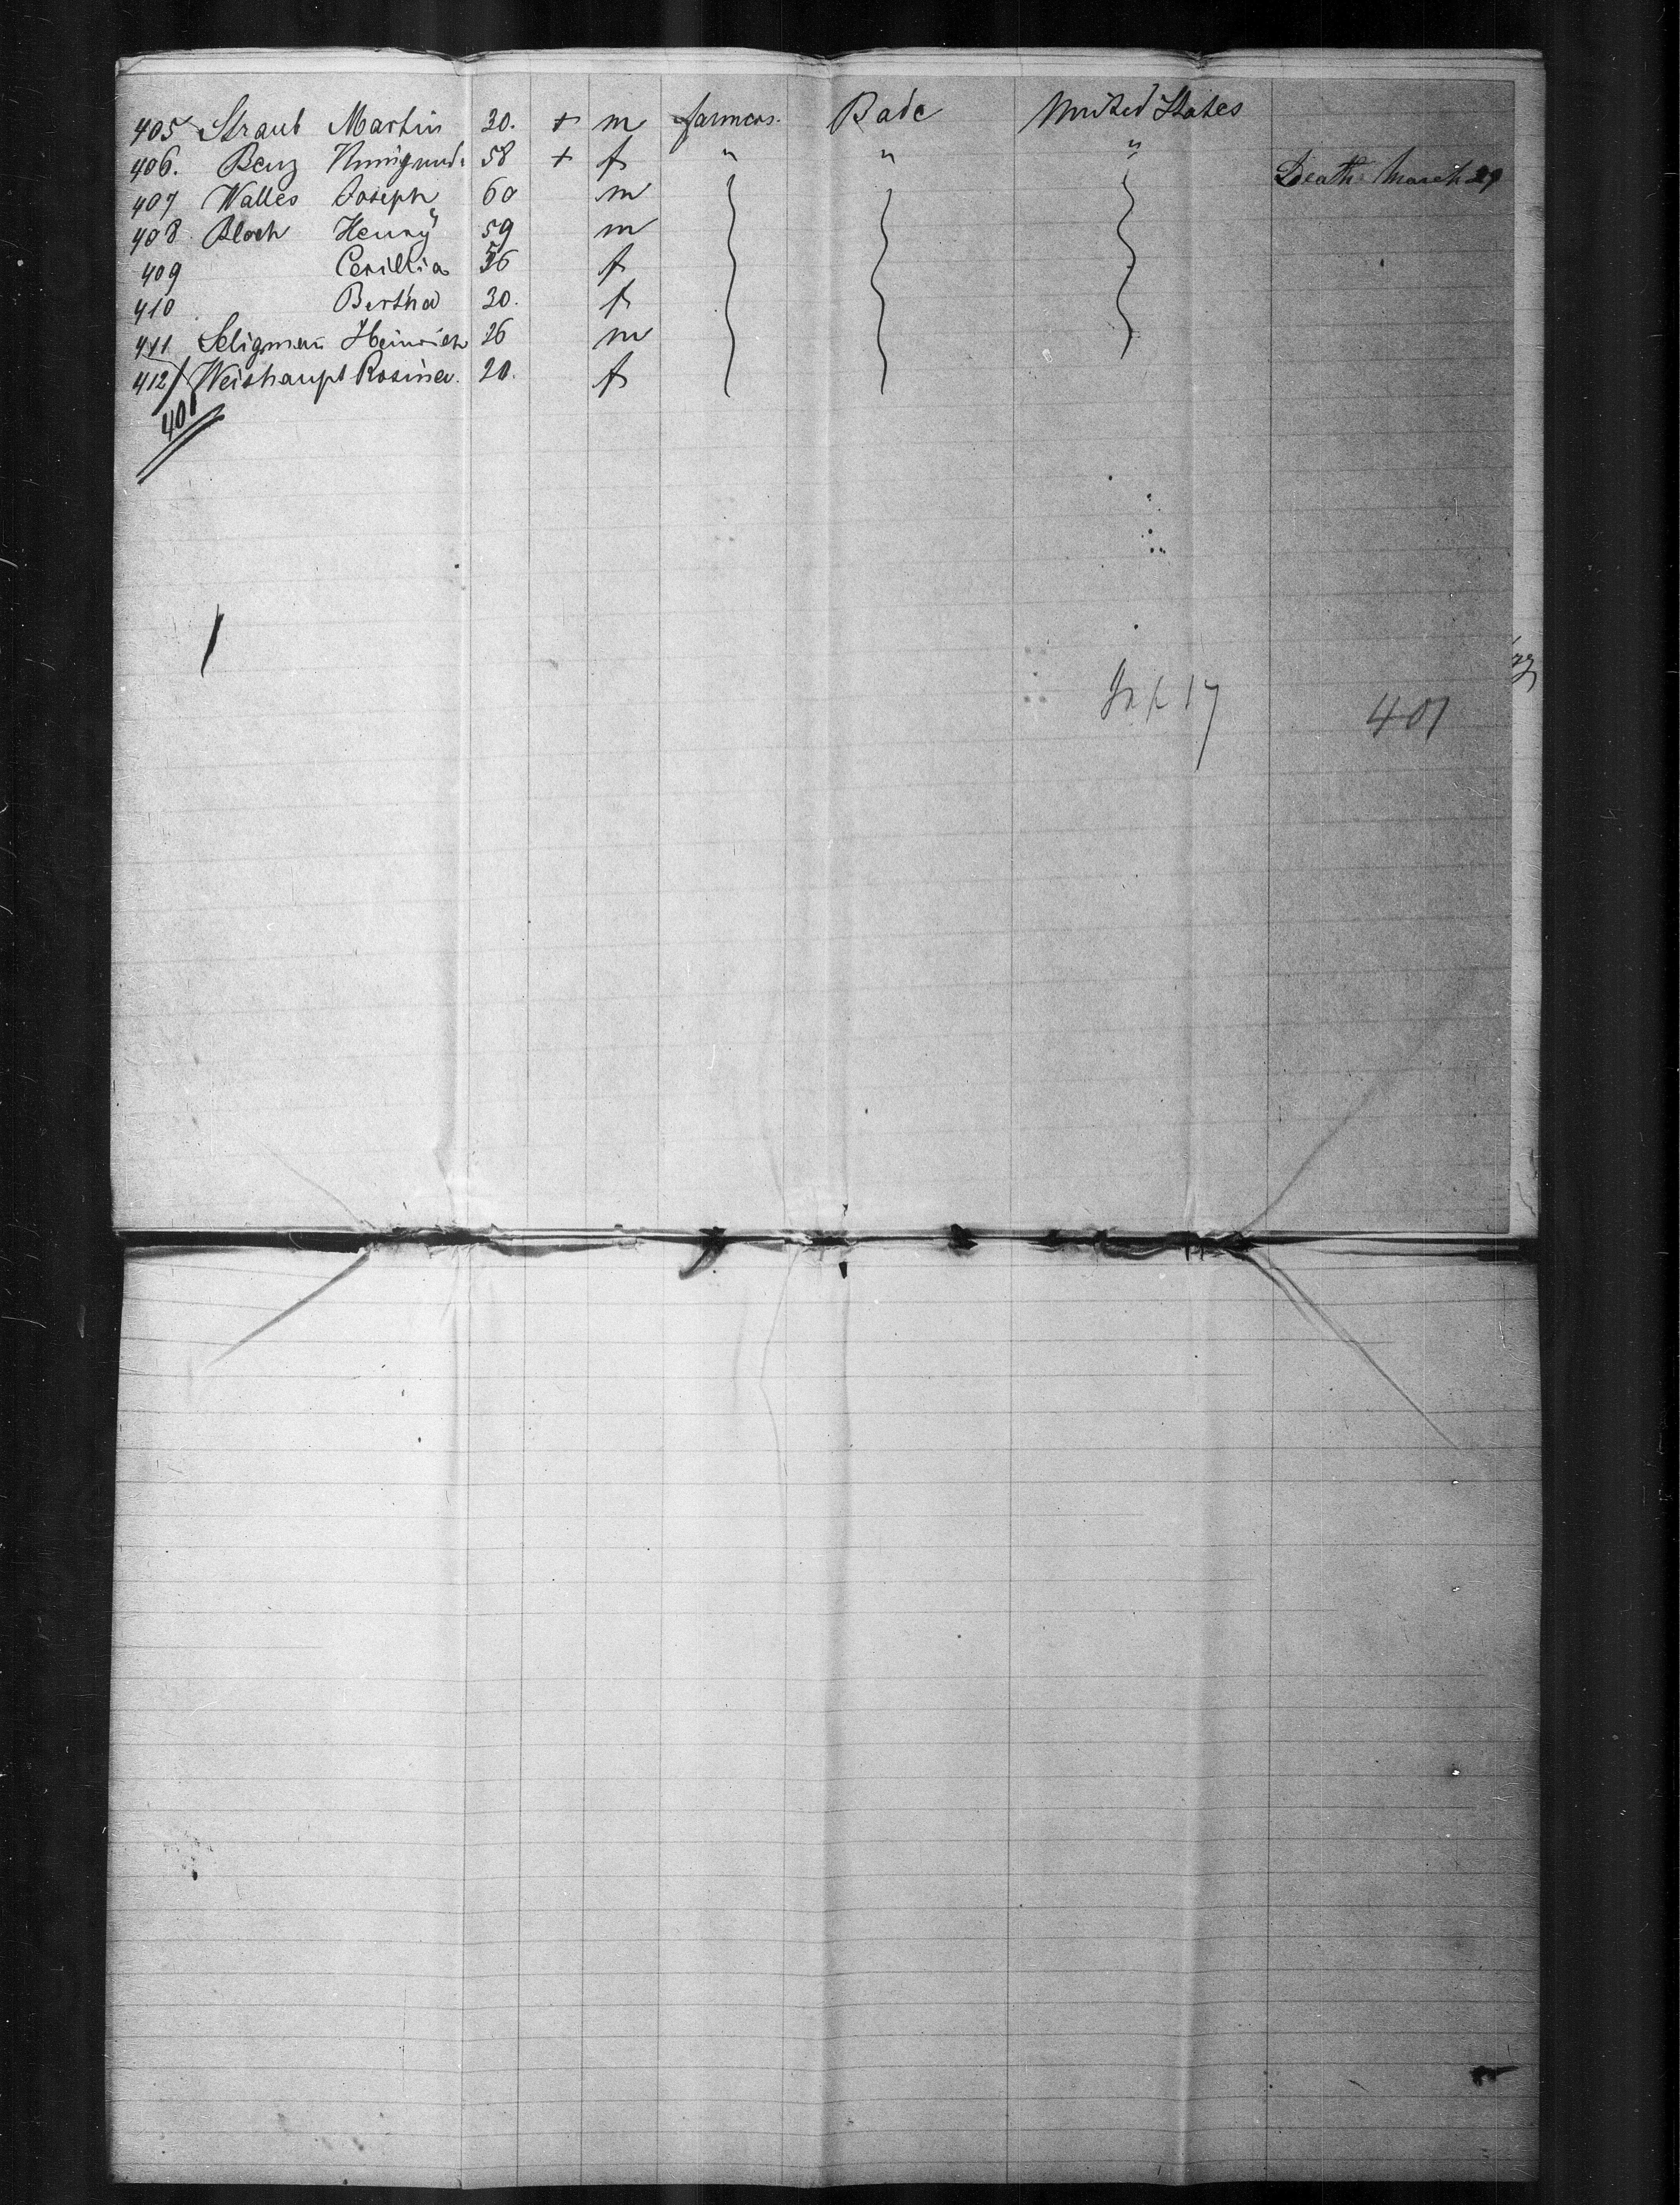 405 Straub Martin 30. + m farmers. Bade United States
406. Benz Kunigund. 58 + f " " " Death March 29
407 Walles Joseph 60 m
408 Bloch Henry 59 m
409 f
410 Bertha 30. f
411 Seligmann Heinrich 26 m
412 Weishaupt Rosina. 20. f
401
17
401